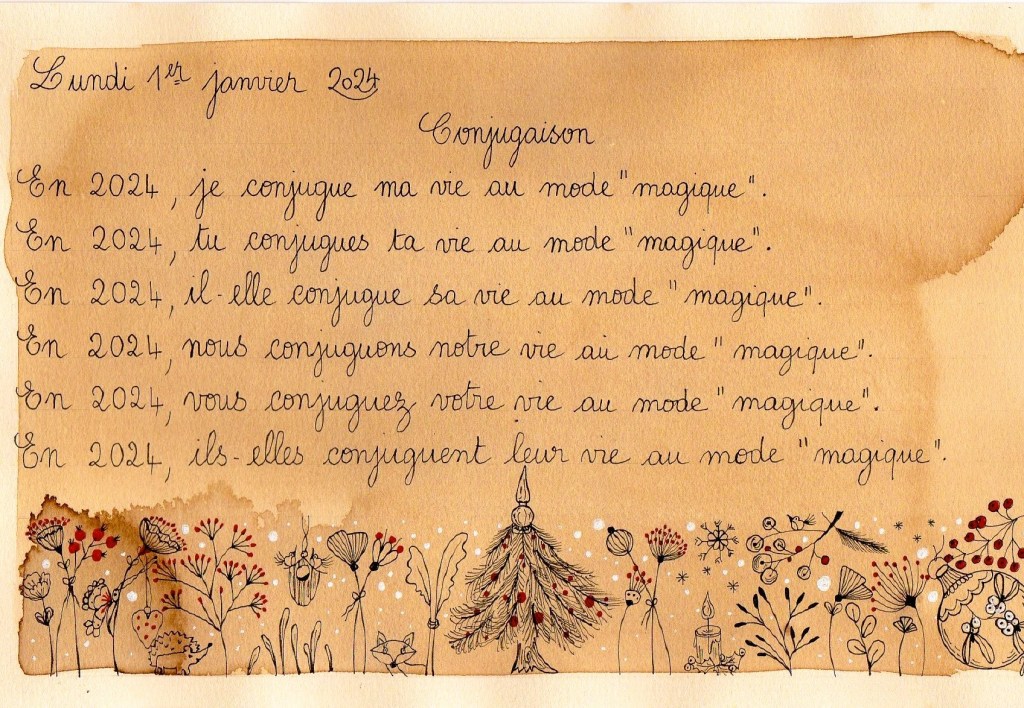 Lundi 1er janvier 2024
Conjugaison
En 2024, je conjugue ma vie au mode "magique".
En 2024, tu conjugues ta vie au mode "magique".
En 2024, il-elle conjugue sa vie au mode "magique".
En 2024, nous conjuguons notre vie au mode "magique".
En 2024, vous conjuguez votre vie au mode "magique".
En 2024, ils-elles conjuguent leur vie au mode "magique".